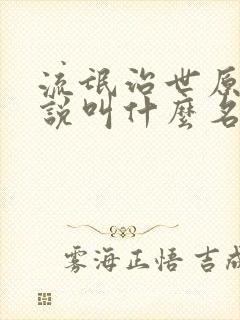 流氓治世原
說叫什麼名
雾海正悟 吉成